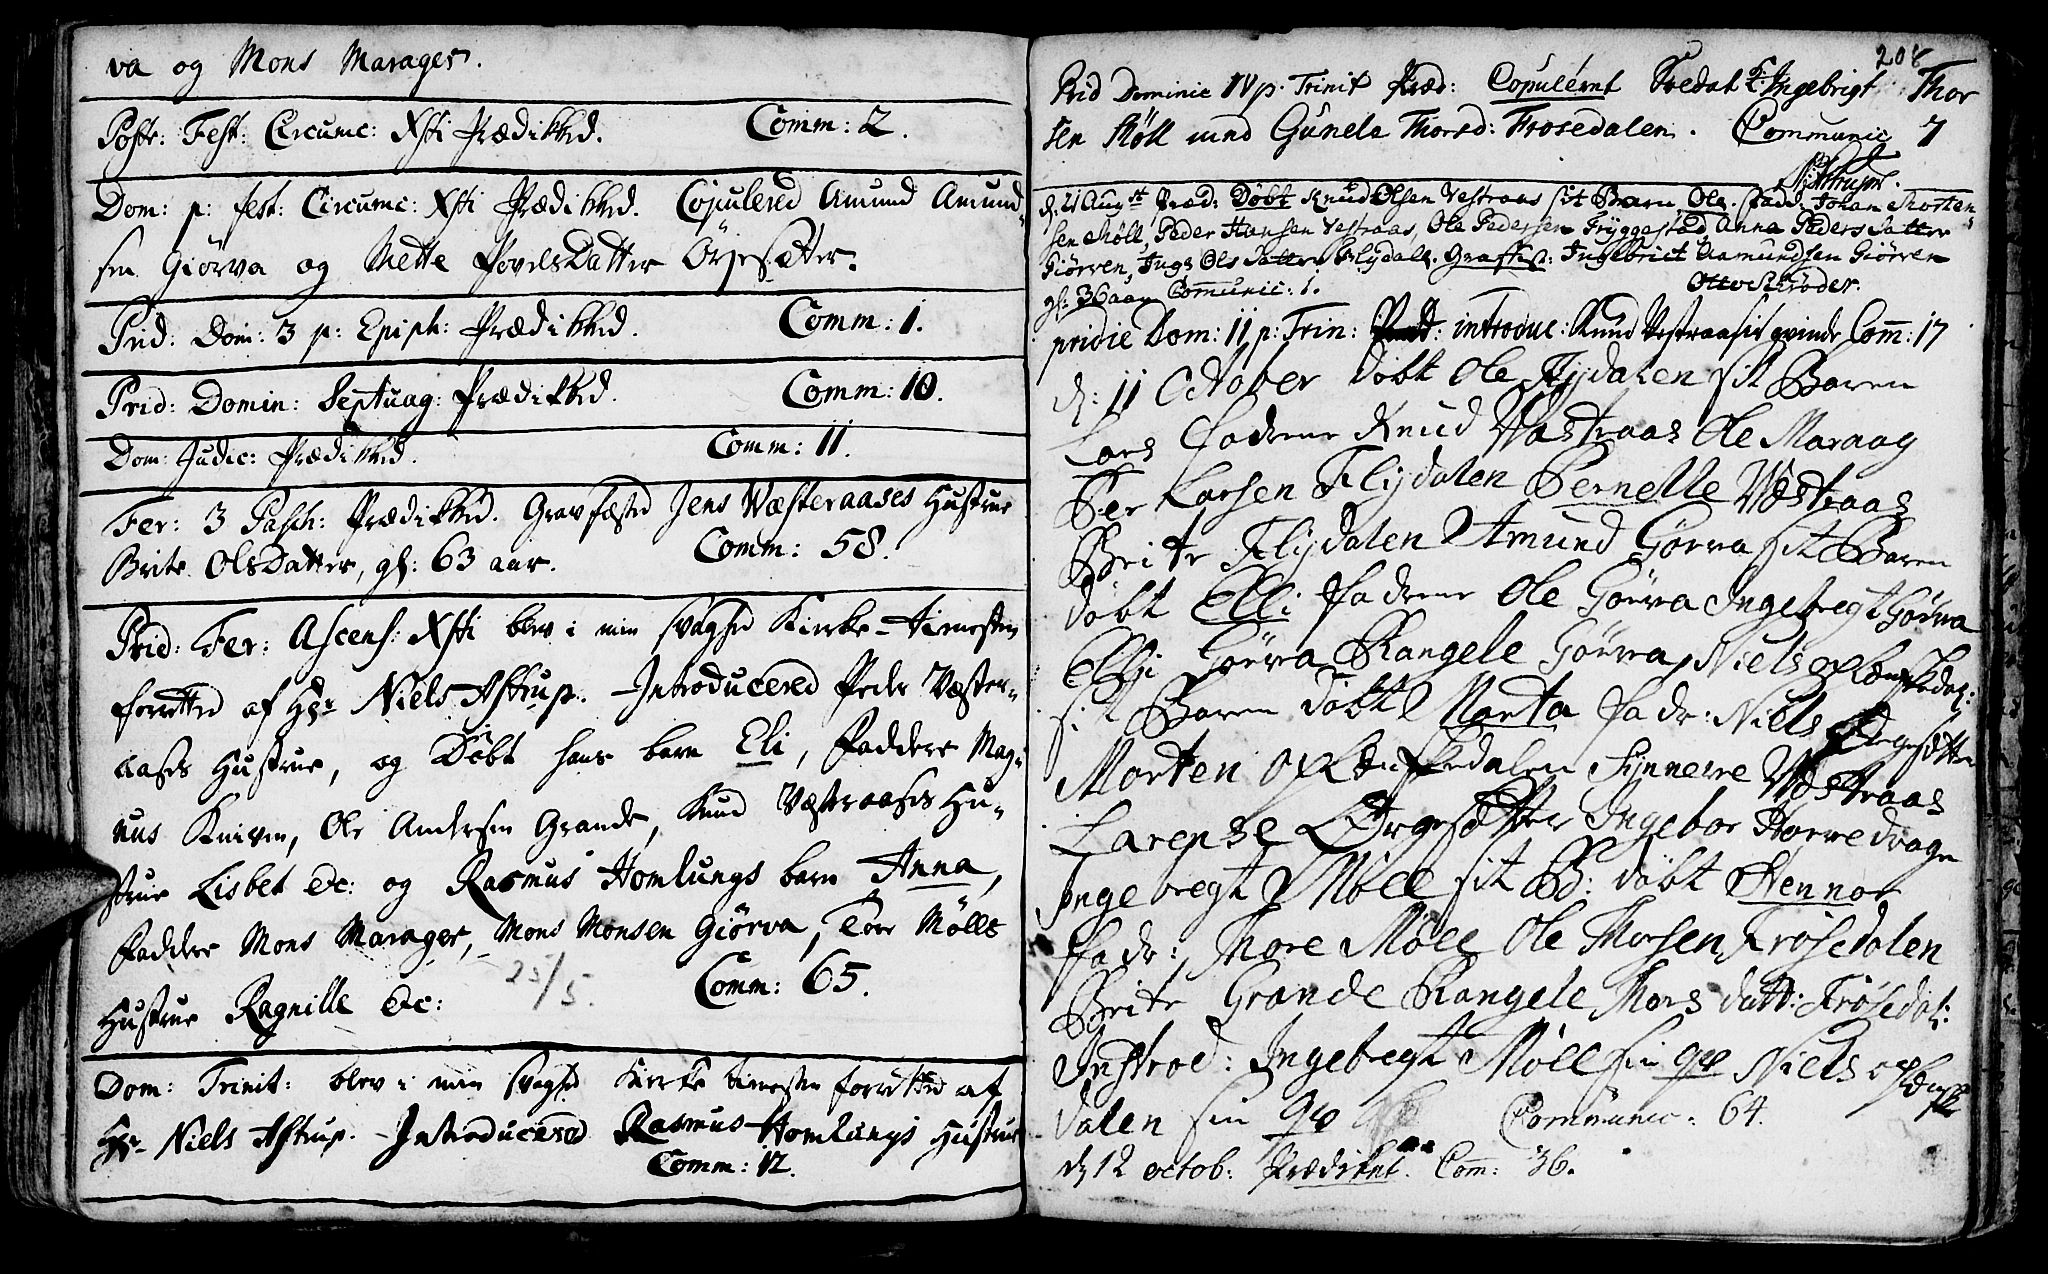 va og Mons Marager.
Postr: Fest: Circumc: Xsti Prædikked. Comm: 2.
Dom: p: fest: Circumc: Xsti Prædikked. Copulered Amund Amund-
sen Giörva og Mette PovelsDatter Örjesæter.
Prid: Dom: 3 p: Epiph: Prædikked. Comm: 1.
Prid: Domin: Septuag: Prædikked. Comm: 10.
Dom: Judic: Prædikked. Comm: 11.
Fer: 3 Pasch: Prædikked. Gravfæsted Jens Wæsteraases Hustrue
Brite OlsDatter, gl: 63 aar. Comm: 58.
Prid: Fer: Ascens: Xsti blev i min svaghed Kirke-tienesten
forretted af Hr. Niels Astrup. Introducered Peder Væster-
aases Hustrue, og Döbt hans barn Eli, Faddere Mag-
nus Kniven, Ole Andersen Grande, Knud Væsteraases Hu-
strue Lisbet &c: og Rasmus Homlungs barn Anna,
Faddere Mons Marager, Mons Monsen Giörva, Tore Mölls
Hustrue Ragnille &c: 25/5. Comm: 65.
Dom: Trinit: blev i min svaghed Kirke tienesten forretted af
Hr. Niels Astrup. Introducered Rasmus Homlungs Hustrue
Comm: 12.
208
Prid Dominic IV p. Trinit Præd: Copulérnt Ingebrigt Thor
sen Möll med Gunela Thorsd: Frosedalen. Communic 7
NAstrup.
d: 21 Augst Præd: Döbt Knud Olsen Vestraas sit Barn Ole. fadd: Johan Morten
sen Möll, Peder Hansen Vestraas, Ole Pedersen Tryggestad Anna Peders Datter
Giörven, Inge Ols Datter Flydal. Graffest: Ingebrict Aamundsen Giörven
gl: 36 aar Communic: 1. Otto Schröder.
pridie Dom: 11 p: Trin: Præd: introduc: Knud Vestraas sit qvinde Com: 17
d: 11 October döbt Ole Flijdalen sit Baren
Lars Fadrene Knud Wastraas Ole Maraag
Per Larsen Flijdalen Pernelle Wæstraas
Brite Flijdalen Amund Görva sit Baren
döbt Elli Fadrene Ole Görva Ingebregt Görva
Elli Görva Rangele Görva, Niels oplænskedal:
sit Baren döbt Marta fadr: Niels Örgesætter
Morten oplænskedalen Synneve Wæstraas
Larense Örgesætter Ingebor Horredrage
Ingebregt Möll sit B: döbt Hennor
fadr: Thore Möll Ole Thorsen Frösedalen
Brite Grande Rangele Thors datt: Frösedal:
Introd: Ingebregt Möll sin qv Niels oplænske
dalen sin qv Communic: 64.
d 12 octob: Prædiket Com: 36.